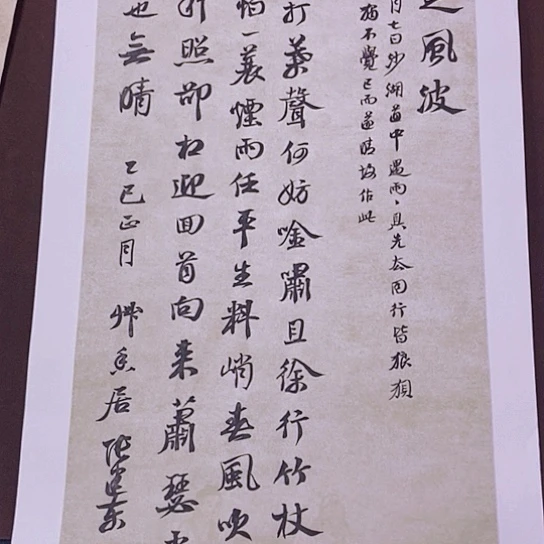 風波
月七日沙湖道中遇雨、具先去同行皆狼狽
獨不覺已而遂晴故作此
打葉聲何妨吟嘯且徐行竹杖
怕一蓑煙雨任平生料峭春風吹
斜照卻相迎回首向來蕭瑟
也無晴 乙巳正月 艸 居